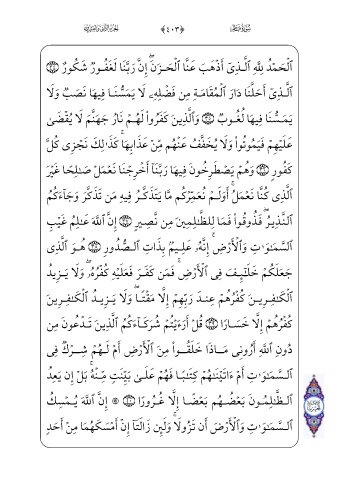 سورة فاطر ﴿٤٠٣﴾ الجزء الثاني والعشرون
ٱلْحَمْدُ لِلَّهِ ٱلَّذِىٓ أَذْهَبَ عَنَّا ٱلْحَزَنَ ۖ إِنَّ رَبَّنَا لَغَفُورٌ شَكُورٌ
ٱلَّذِىٓ أَحَلَّنَا دَارَ ٱلْمُقَامَةِ مِن فَضْلِهِۦ لَا يَمَسُّنَا فِيهَا نَصَبٌ وَلَا
يَمَسُّنَا فِيهَا لُغُوبٌ وَٱلَّذِينَ كَفَرُوا۟ لَهُمْ نَارُ جَهَنَّمَ لَا يُقْضَىٰ
عَلَيْهِمْ فَيَمُوتُوا۟ وَلَا يُخَفَّفُ عَنْهُم مِّنْ عَذَابِهَا ۚ كَذَٰلِكَ نَجْزِى كُلَّ
كَفُورٍ وَهُمْ يَصْطَرِخُونَ فِيهَا رَبَّنَآ أَخْرِجْنَا نَعْمَلْ صَٰلِحًا غَيْرَ
ٱلَّذِى كُنَّا نَعْمَلُ ۚ أَوَلَمْ نُعَمِّرْكُم مَّا يَتَذَكَّرُ فِيهِ مَن تَذَكَّرَ وَجَآءَكُمُ
ٱلنَّذِيرُ ۖ فَذُوقُوا۟ فَمَا لِلظَّٰلِمِينَ مِن نَّصِيرٍ إِنَّ ٱللَّهَ عَٰلِمُ غَيْبِ
ٱلسَّمَٰوَٰتِ وَٱلْأَرْضِ ۚ إِنَّهُۥ عَلِيمٌۢ بِذَاتِ ٱلصُّدُورِ هُوَ ٱلَّذِى
جَعَلَكُمْ خَلَٰٓئِفَ فِى ٱلْأَرْضِ ۚ فَمَن كَفَرَ فَعَلَيْهِ كُفْرُهُۥ ۖ وَلَا يَزِيدُ
ٱلْكَٰفِرِينَ كُفْرُهُمْ عِندَ رَبِّهِمْ إِلَّا مَقْتًا ۖ وَلَا يَزِيدُ ٱلْكَٰفِرِينَ
كُفْرُهُمْ إِلَّا خَسَارًا قُلْ أَرَءَيْتُمْ شُرَكَآءَكُمُ ٱلَّذِينَ تَدْعُونَ مِن
دُونِ ٱللَّهِ أَرُونِى مَاذَا خَلَقُوا۟ مِنَ ٱلْأَرْضِ أَمْ لَهُمْ شِرْكٌ فِى
ٱلسَّمَٰوَٰتِ أَمْ ءَاتَيْنَٰهُمْ كِتَٰبًا فَهُمْ عَلَىٰ بَيِّنَتٍ مِّنْهُ ۚ بَلْ إِن يَعِدُ
ٱلظَّٰلِمُونَ بَعْضُهُم بَعْضًا إِلَّا غُرُورًا ۞ إِنَّ ٱللَّهَ يُمْسِكُ
ٱلسَّمَٰوَٰتِ وَٱلْأَرْضَ أَن تَزُولَا ۚ وَلَئِن زَالَتَآ إِنْ أَمْسَكَهُمَا مِنْ أَحَدٍ